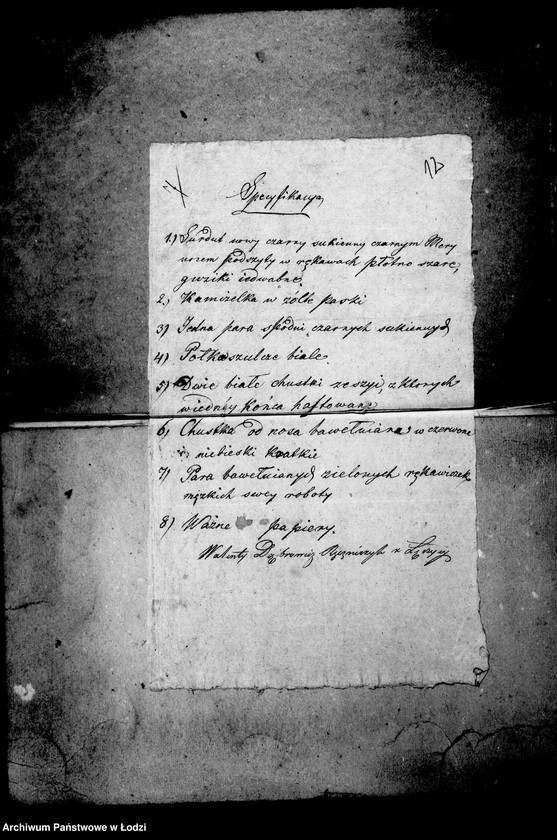 12
Specyfikacya
1.) Surdut nowy czarny sukienny czarnym Mery
nosem podszyty w rękawach płótno szare,
guziki iedwabne.
2.) Kamizelka w żółte paski
3) Jedna para spodni czarnych sukiennych
4) Półkoszulcze białe.
5) Dwie białe chustki ze szyi, z których
w iednéy końca haftowane
6) Chustka od nosa bawełniana w czerwone
i niebieski kratkie
7) Para bawełnianych zielonych rękawiczek
męzkich swey roboty
8) Ważne papiery.
Walenty Dąbrowicz z
Archiwum Państwowe w Łodzi